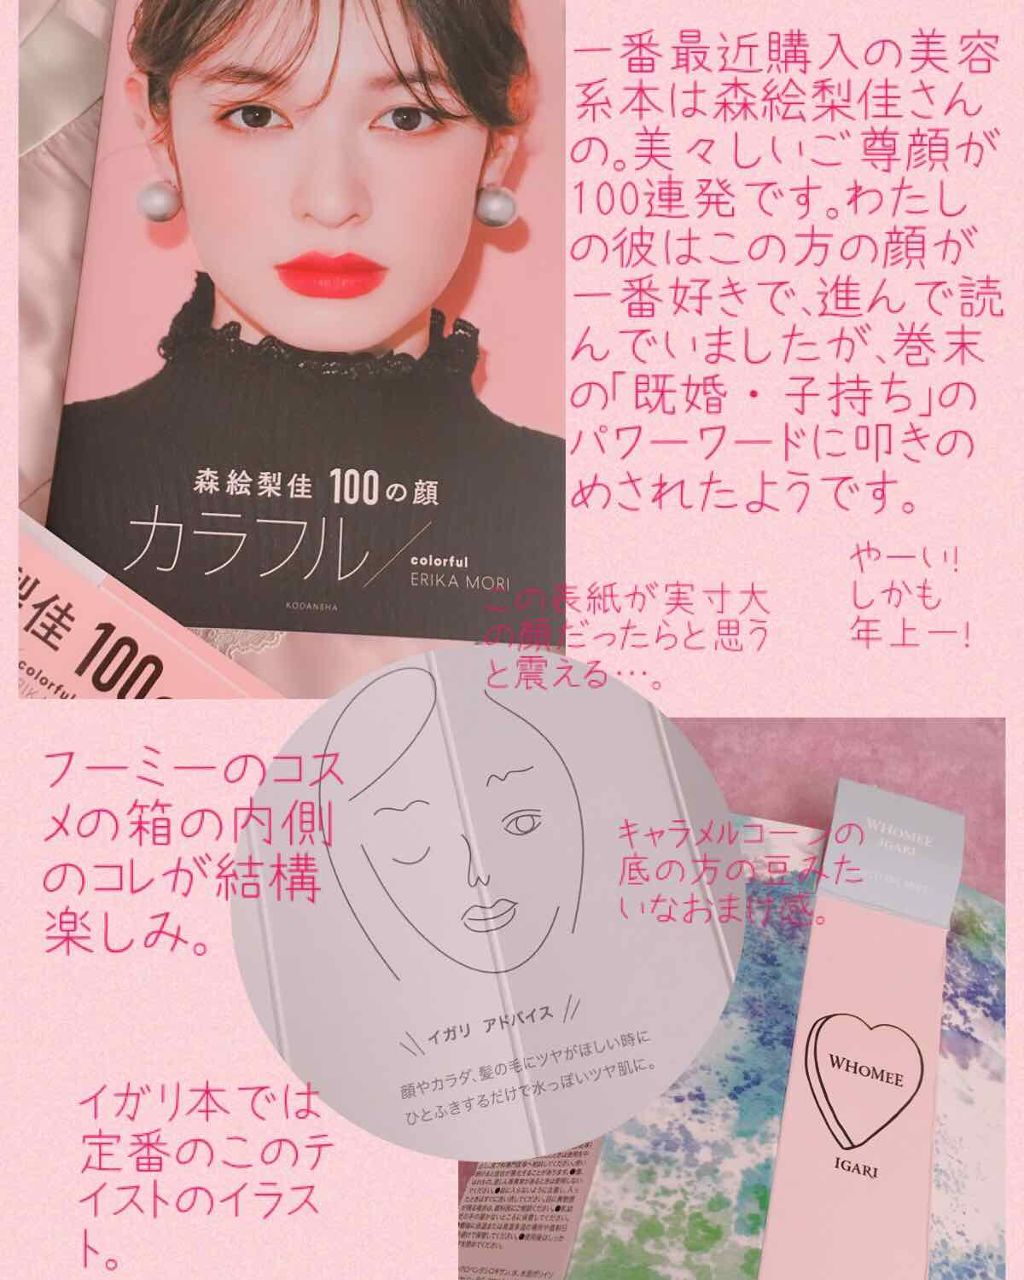 一番最近購入の美容
系本は森絵梨佳さん
の。美々しいご尊顔が
100連発です。わたし
の彼はこの方の顔が
一番好きで、進んで読
んでいましたが、巻末
の「既婚・子持ち」の
パワーワードに叩きの
めされたようです。
やーい!
しかも
年上ー!
森絵梨佳 100の顔
カラフル/
colorful
ERIKA MORI
KODANSHA
この表紙が実寸大
の顔だったらと思う
と震える…。
梨佳 100
colorful
フーミーのコス
メの箱の内側
のコレが結構
楽しみ。
キャラメルコーンの
底の方の豆みた
いなおまけ感。
\\ イガリ アドバイス //
顔やカラダ、髪の毛にツヤがほしい時に
ひとふきするだけで水っぽいツヤ肌に。
WHOMEE
IGARI
WHOMEE
IGARI
イガリ本では
定番のこのテ
イストのイラス
ト。